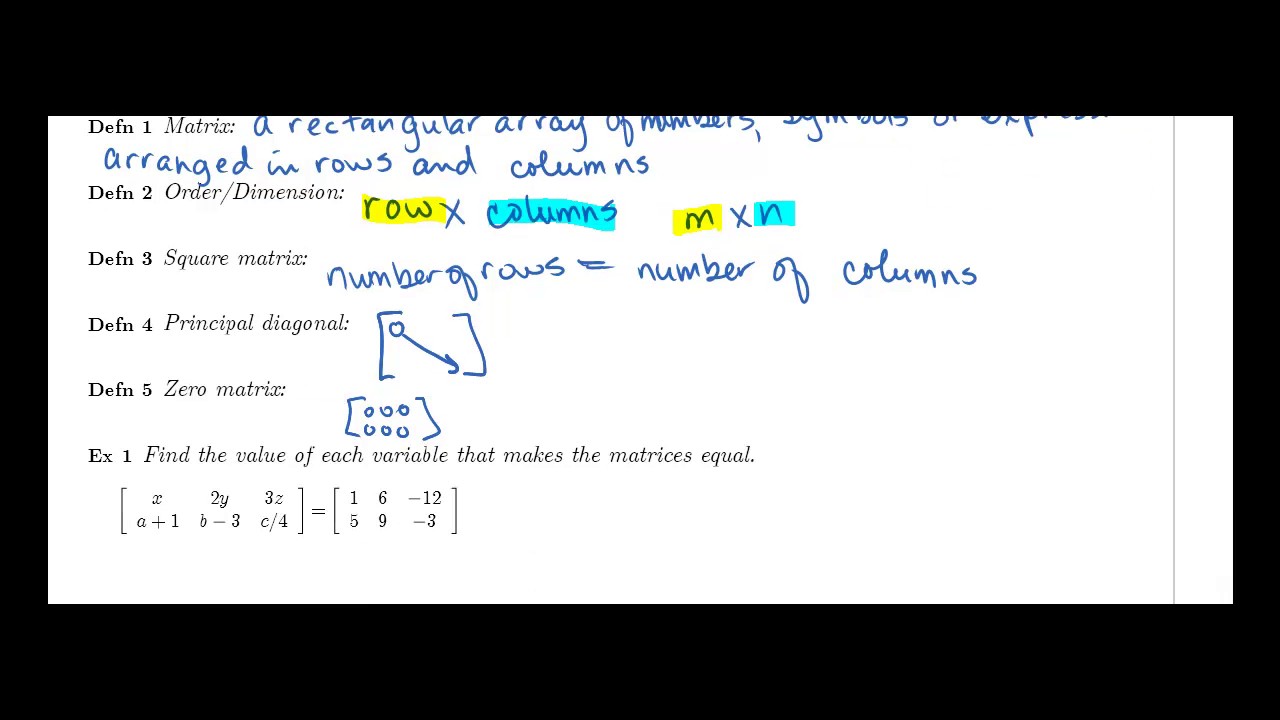 Defn 1 Matrix: a rectangular array of numbers, symbols or express
arranged in rows and columns
Defn 2 Order/Dimension: row x columns m x n
Defn 3 Square matrix: number of rows = number of columns
Defn 4 Principal diagonal: [0 ]
Defn 5 Zero matrix:
[000
000]
Ex 1 Find the value of each variable that makes the matrices equal.
[ x 2y 3z ] = [ 1 6 −12 ]
[ a + 1 b − 3 c/4 ] [ 5 9 −3 ]